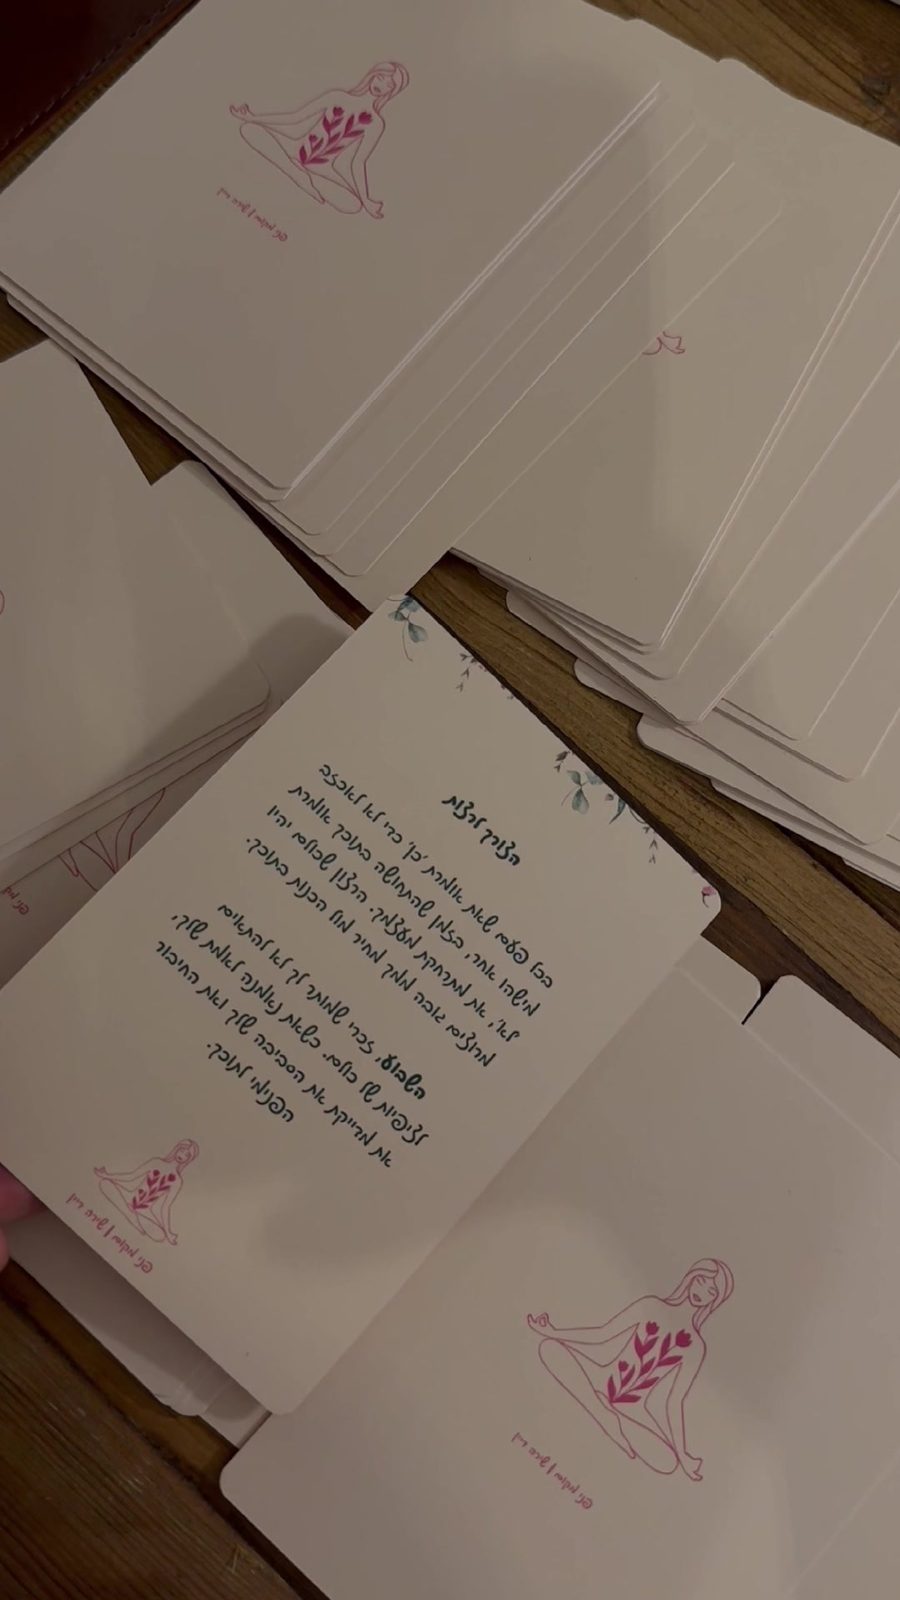 הצורך לרצות
בכל פעם שאת אומרת 'כן' כדי לא לאכזב
מישהו אחר, בזמן שהתחושה בתוכך אומרת
לא', את מתרחקת מעצמך. הרצון שכולם יהיו
מרוצים גובה ממך מחיר מול הכנות בתוכך.
השבוע, זכרי שמותר לך לא להתאים
לציפיות של כולם. כשאת נאמנה לאמת שלך,
את מדייקת את הסביבה שלך ואת החיבור
הפנימי לתוכך.